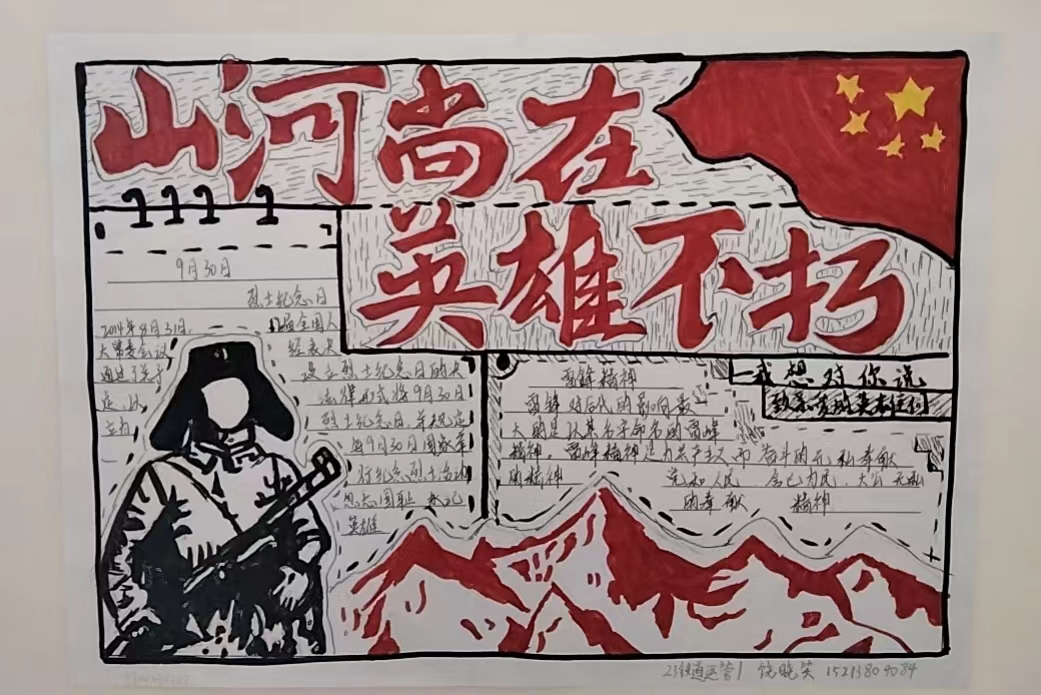 山河尚在
英雄不朽
9月30日
烈士纪念日
2014年8月31日,
届全国人
大常委会议
经表决
通过了关于
设立烈士纪念日的决
定,以
法律形式将9月30日
立为
烈士纪念日,并规定
每年9月30日国家举
行纪念烈士活动
英雄
雷锋精神
雷锋对后代的影响最
大的是以其名字命名的雷锋
精神。雷锋精神是为共产主义而奋斗的无私奉献
的精神
党和人民
舍己为民,大公无私
的奉献
精神
我想对你说
23铁道运营1 饶晓笑 15213809084